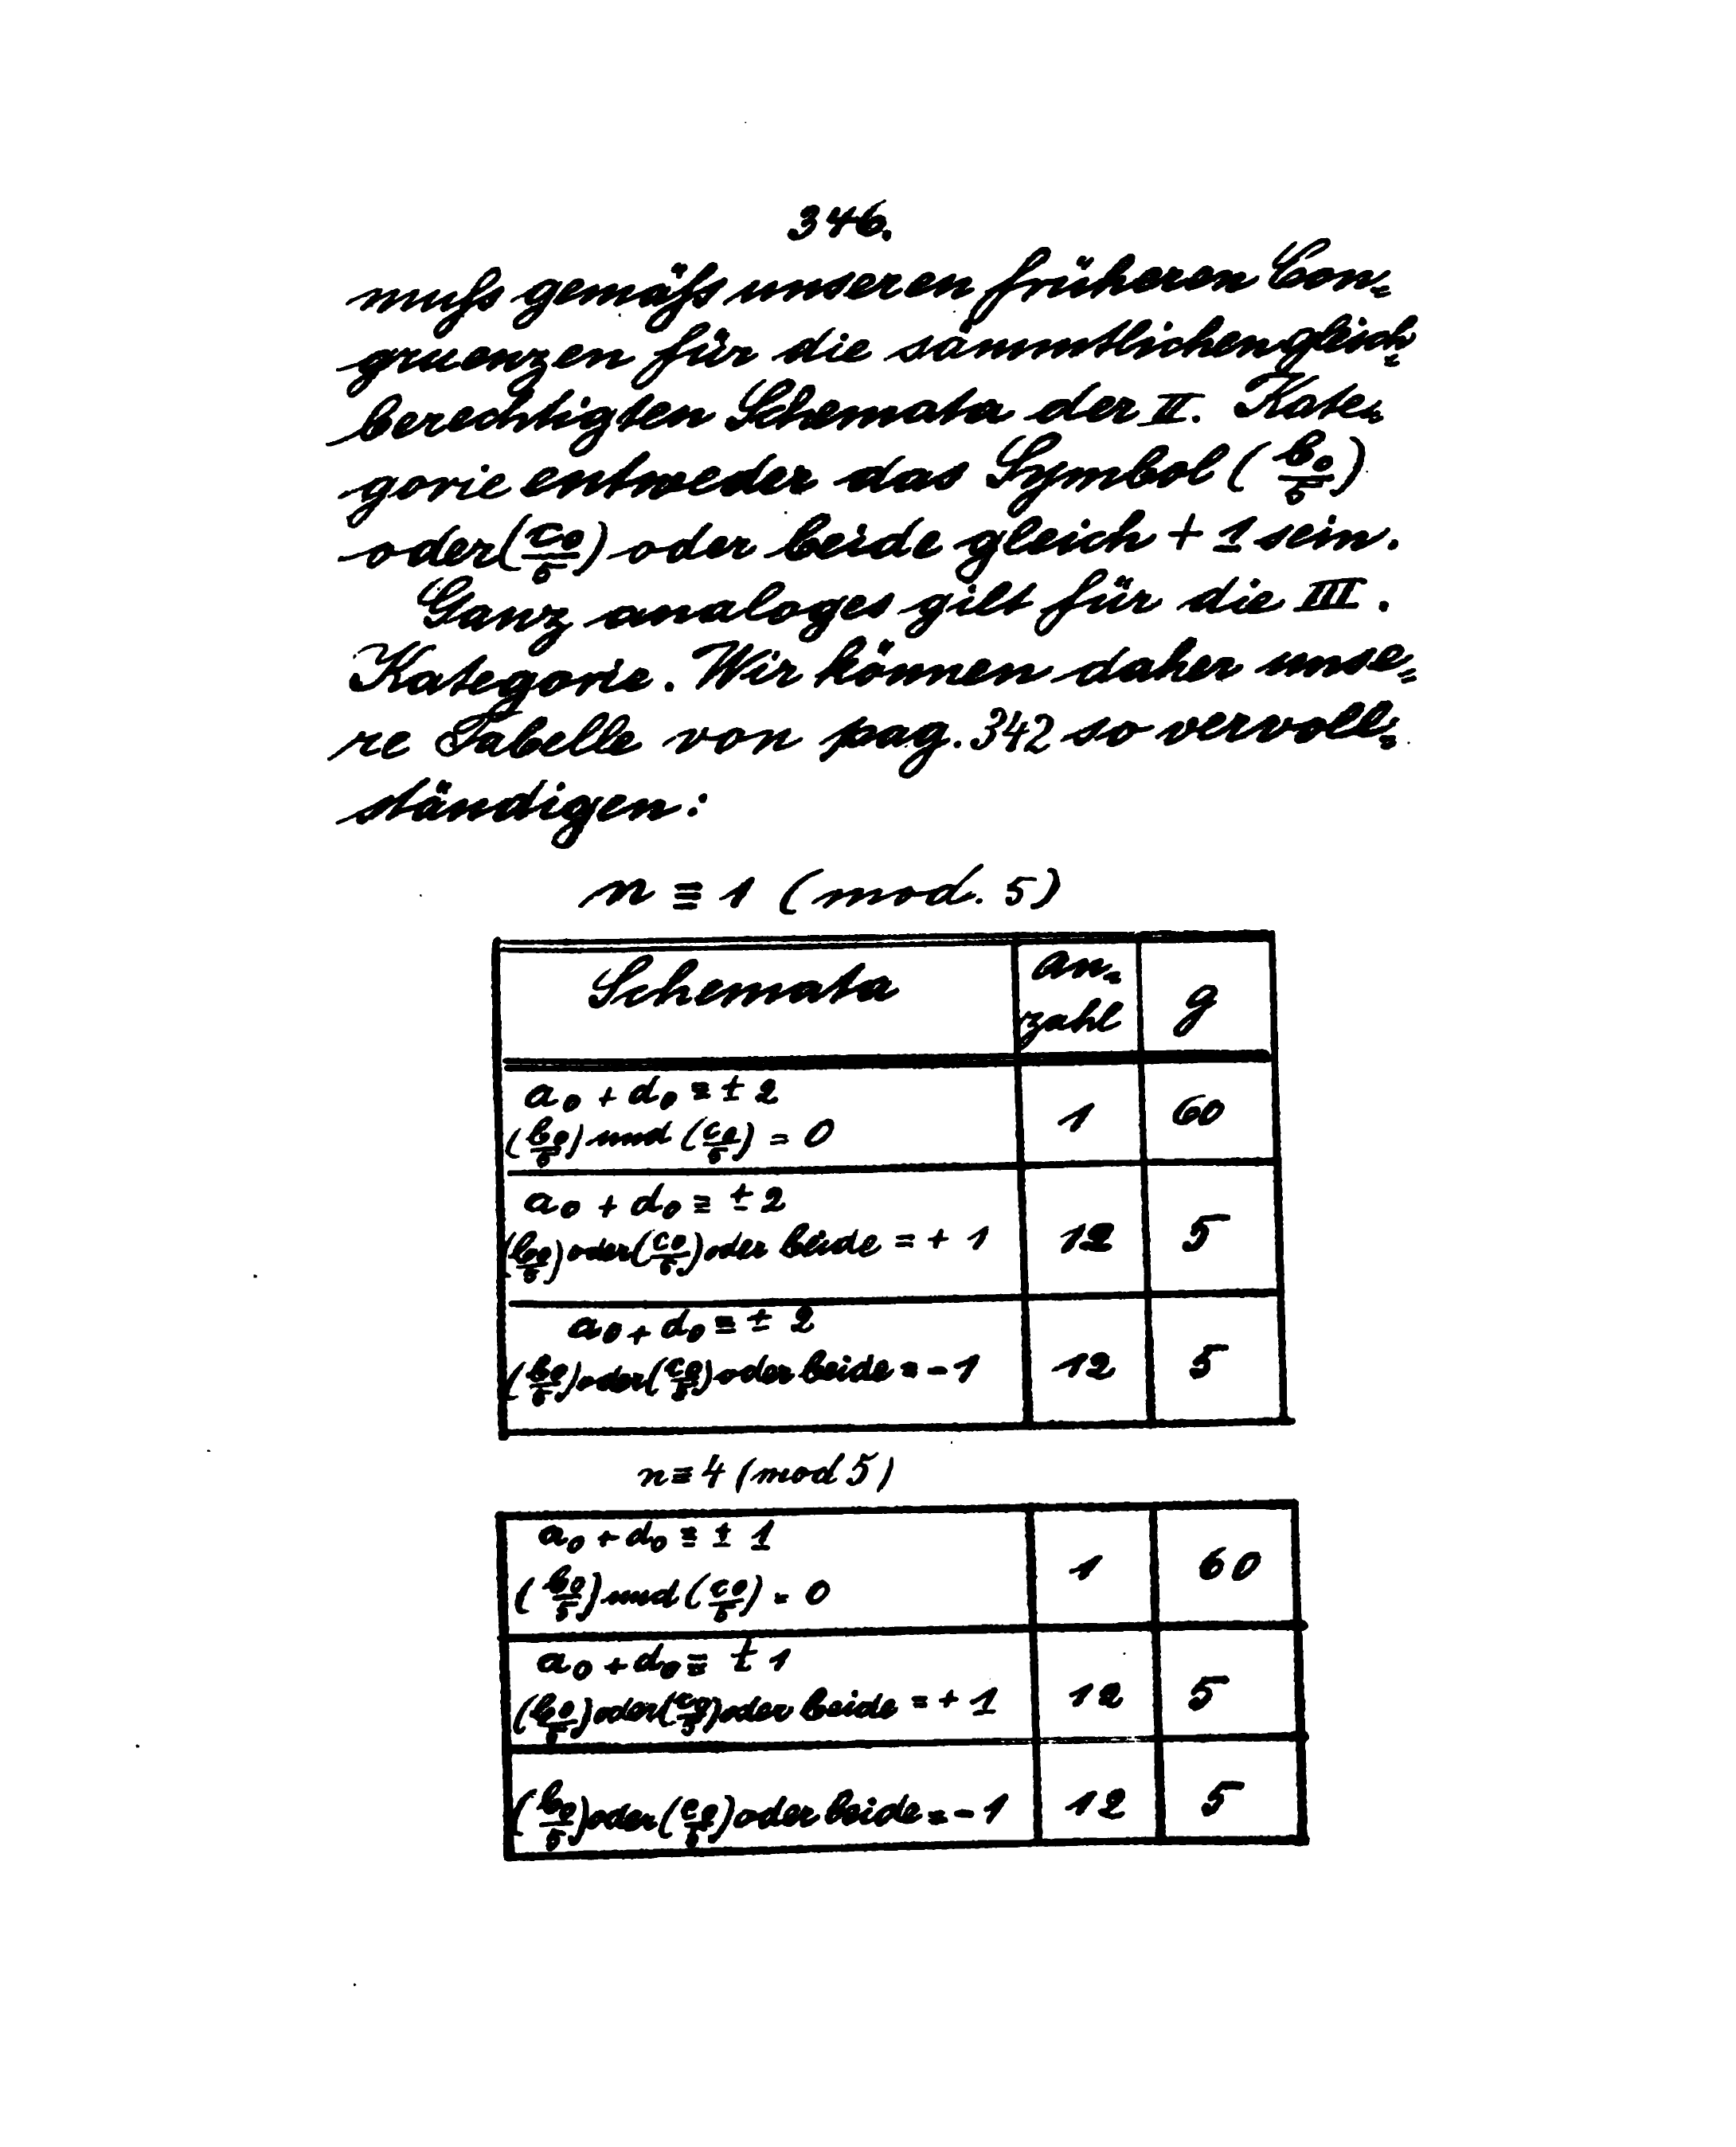 346.
muß gemäß unseren früheren Con=
gruenzen für die sämmtlichen gleich=
berechtigten Schemata der II. Kate=
gorie entweder das Symbol (b₀/5)
oder (c₀/5) oder beide gleich + 1 sein.
Ganz analoges gilt für die III.
Kategorie. Wir können daher unse=
re Tabelle von pag. 342 so vervoll=
ständigen:
n ≡ 1 (mod. 5)
Schemata | An=zahl | g
a₀ + d₀ ≡ ± 2
(b₀/5) und (c₀/5) = 0 | 1 | 60
a₀ + d₀ ≡ ± 2
(b₀/5) oder (c₀/5) oder beide = + 1 | 12 | 5
a₀ + d₀ ≡ ± 2
(b₀/5) oder (c₀/5) oder beide = - 1 | 12 | 5
n ≡ 4 (mod 5)
a₀ + d₀ ≡ ± 1
(b₀/5) und (c₀/5) = 0 | 1 | 60
a₀ + d₀ ≡ ± 1
(b₀/5) oder (c₀/5) oder beide = + 1 | 12 | 5
(b₀/5) oder (c₀/5) oder beide = - 1 | 12 | 5